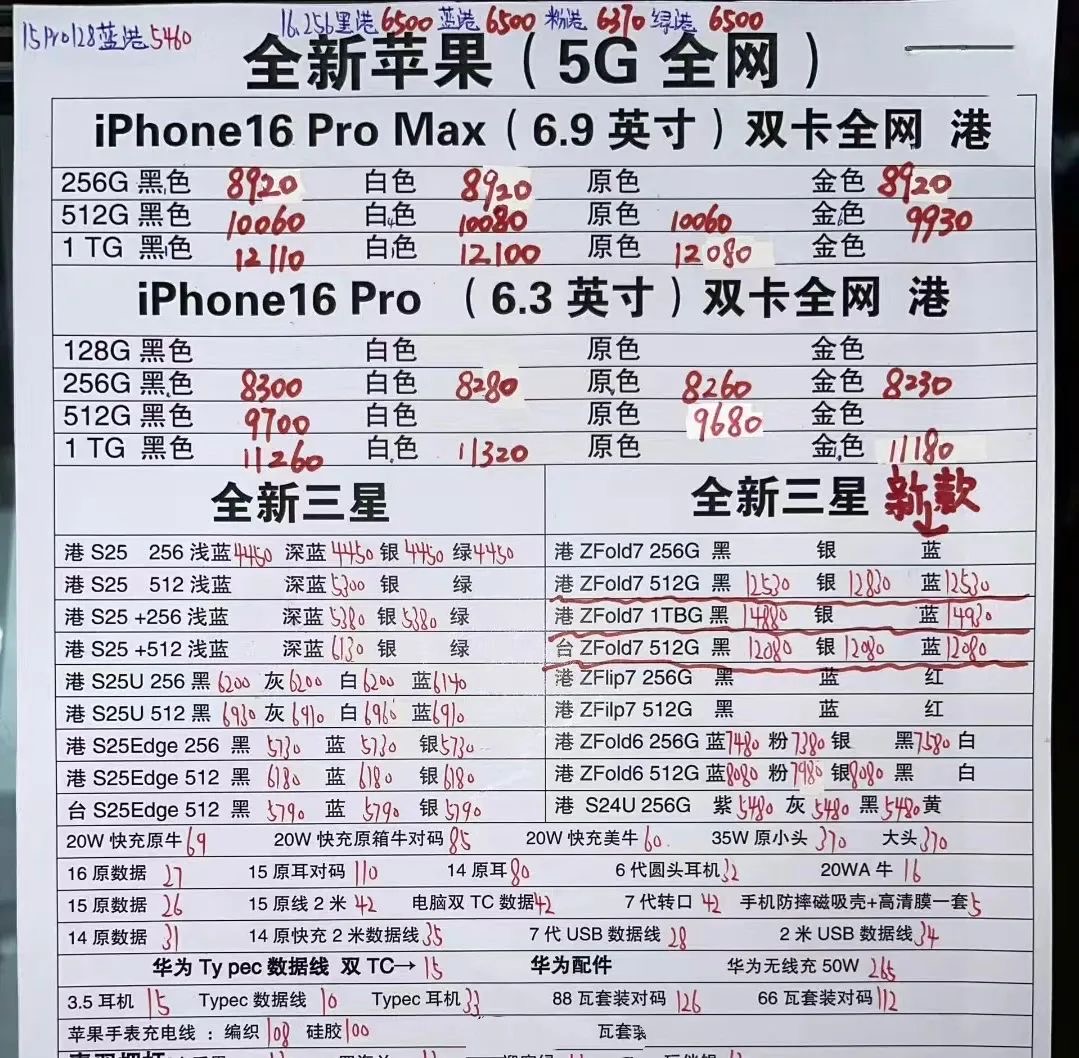 16.256黑港6500 蓝港6500 粉港6370 绿港6500
15Pro128蓝港5460
全新苹果(5G全网)
iPhone16 Pro Max(6.9英寸)双卡全网 港
256G 黑色 8920 白色 8920 原色 金色 8920
512G 黑色 10060 白色 10080 原色 10060 金色 9930
1 TG 黑色 12110 白色 12100 原色 12080 金色
iPhone16 Pro (6.3英寸)双卡全网 港
128G 黑色 白色 原色 金色
256G 黑色 8300 白色 8280 原色 8260 金色 8230
512G 黑色 9700 白色 原色 9680 金色
1 TG 黑色 11260 白色 11320 原色 金色 11180
全新三星
港 S25 256 浅蓝4450 深蓝4450 银4450 绿4450
港 S25 512 浅蓝 深蓝5300 银 绿
港 S25 +256 浅蓝 深蓝5380 银5380 绿
港 S25 +512 浅蓝 深蓝6130 银 绿
港 S25U 256 黑6200 灰6200 白6200 蓝6140
港 S25U 512 黑6930 灰6910 白6960 蓝6910
港 S25Edge 256 黑 5730 蓝 5730 银5730
港 S25Edge 512 黑 6180 蓝 6180 银6180
台 S25Edge 512 黑 5790 蓝 5790 银5790
全新三星 新款
港 ZFold7 256G 黑 银 蓝
港 ZFold7 512G 黑 12530 银 12830 蓝12530
港 ZFold7 1TBG 黑 14880 银 蓝14930
台 ZFold7 512G 黑 12080 银12080 蓝12080
港 ZFlip7 256G 黑 蓝 红
港 ZFilp7 512G 黑 蓝 红
港 ZFold6 256G 蓝7480 粉7380 银 黑7580 白
港 ZFold6 512G 蓝8080 粉7980 银8080 黑 白
港 S24U 256G 紫5480 灰5480 黑5480 黄
20W 快充原牛69 20W 快充原箱牛对码85 20W 快充美牛60 35W 原小头370 大头370
16 原数据 27 15 原耳对码110 14 原耳80 6 代圆头耳机32 20WA 牛 16
15 原数据 26 15 原线2米42 电脑双 TC 数据42 7 代转口 42 手机防摔磁吸壳+高清膜一套5
14 原数据 31 14 原快充2米数据线35 7 代 USB 数据线 28 2米 USB 数据线34
华为 Ty pec 数据线 双 TC→ 15 华为配件 华为无线充 50W 265
3.5 耳机 15 Typec 数据线 10 Typec 耳机33 88 瓦套装对码 126 66 瓦套装对码112
苹果手表充电线:编织108 硅胶100 瓦套装